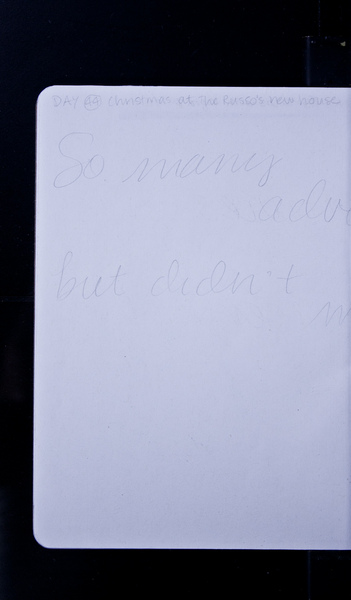 DAY 43 Christmas at the Russo's new house
So many
adv
but didn't